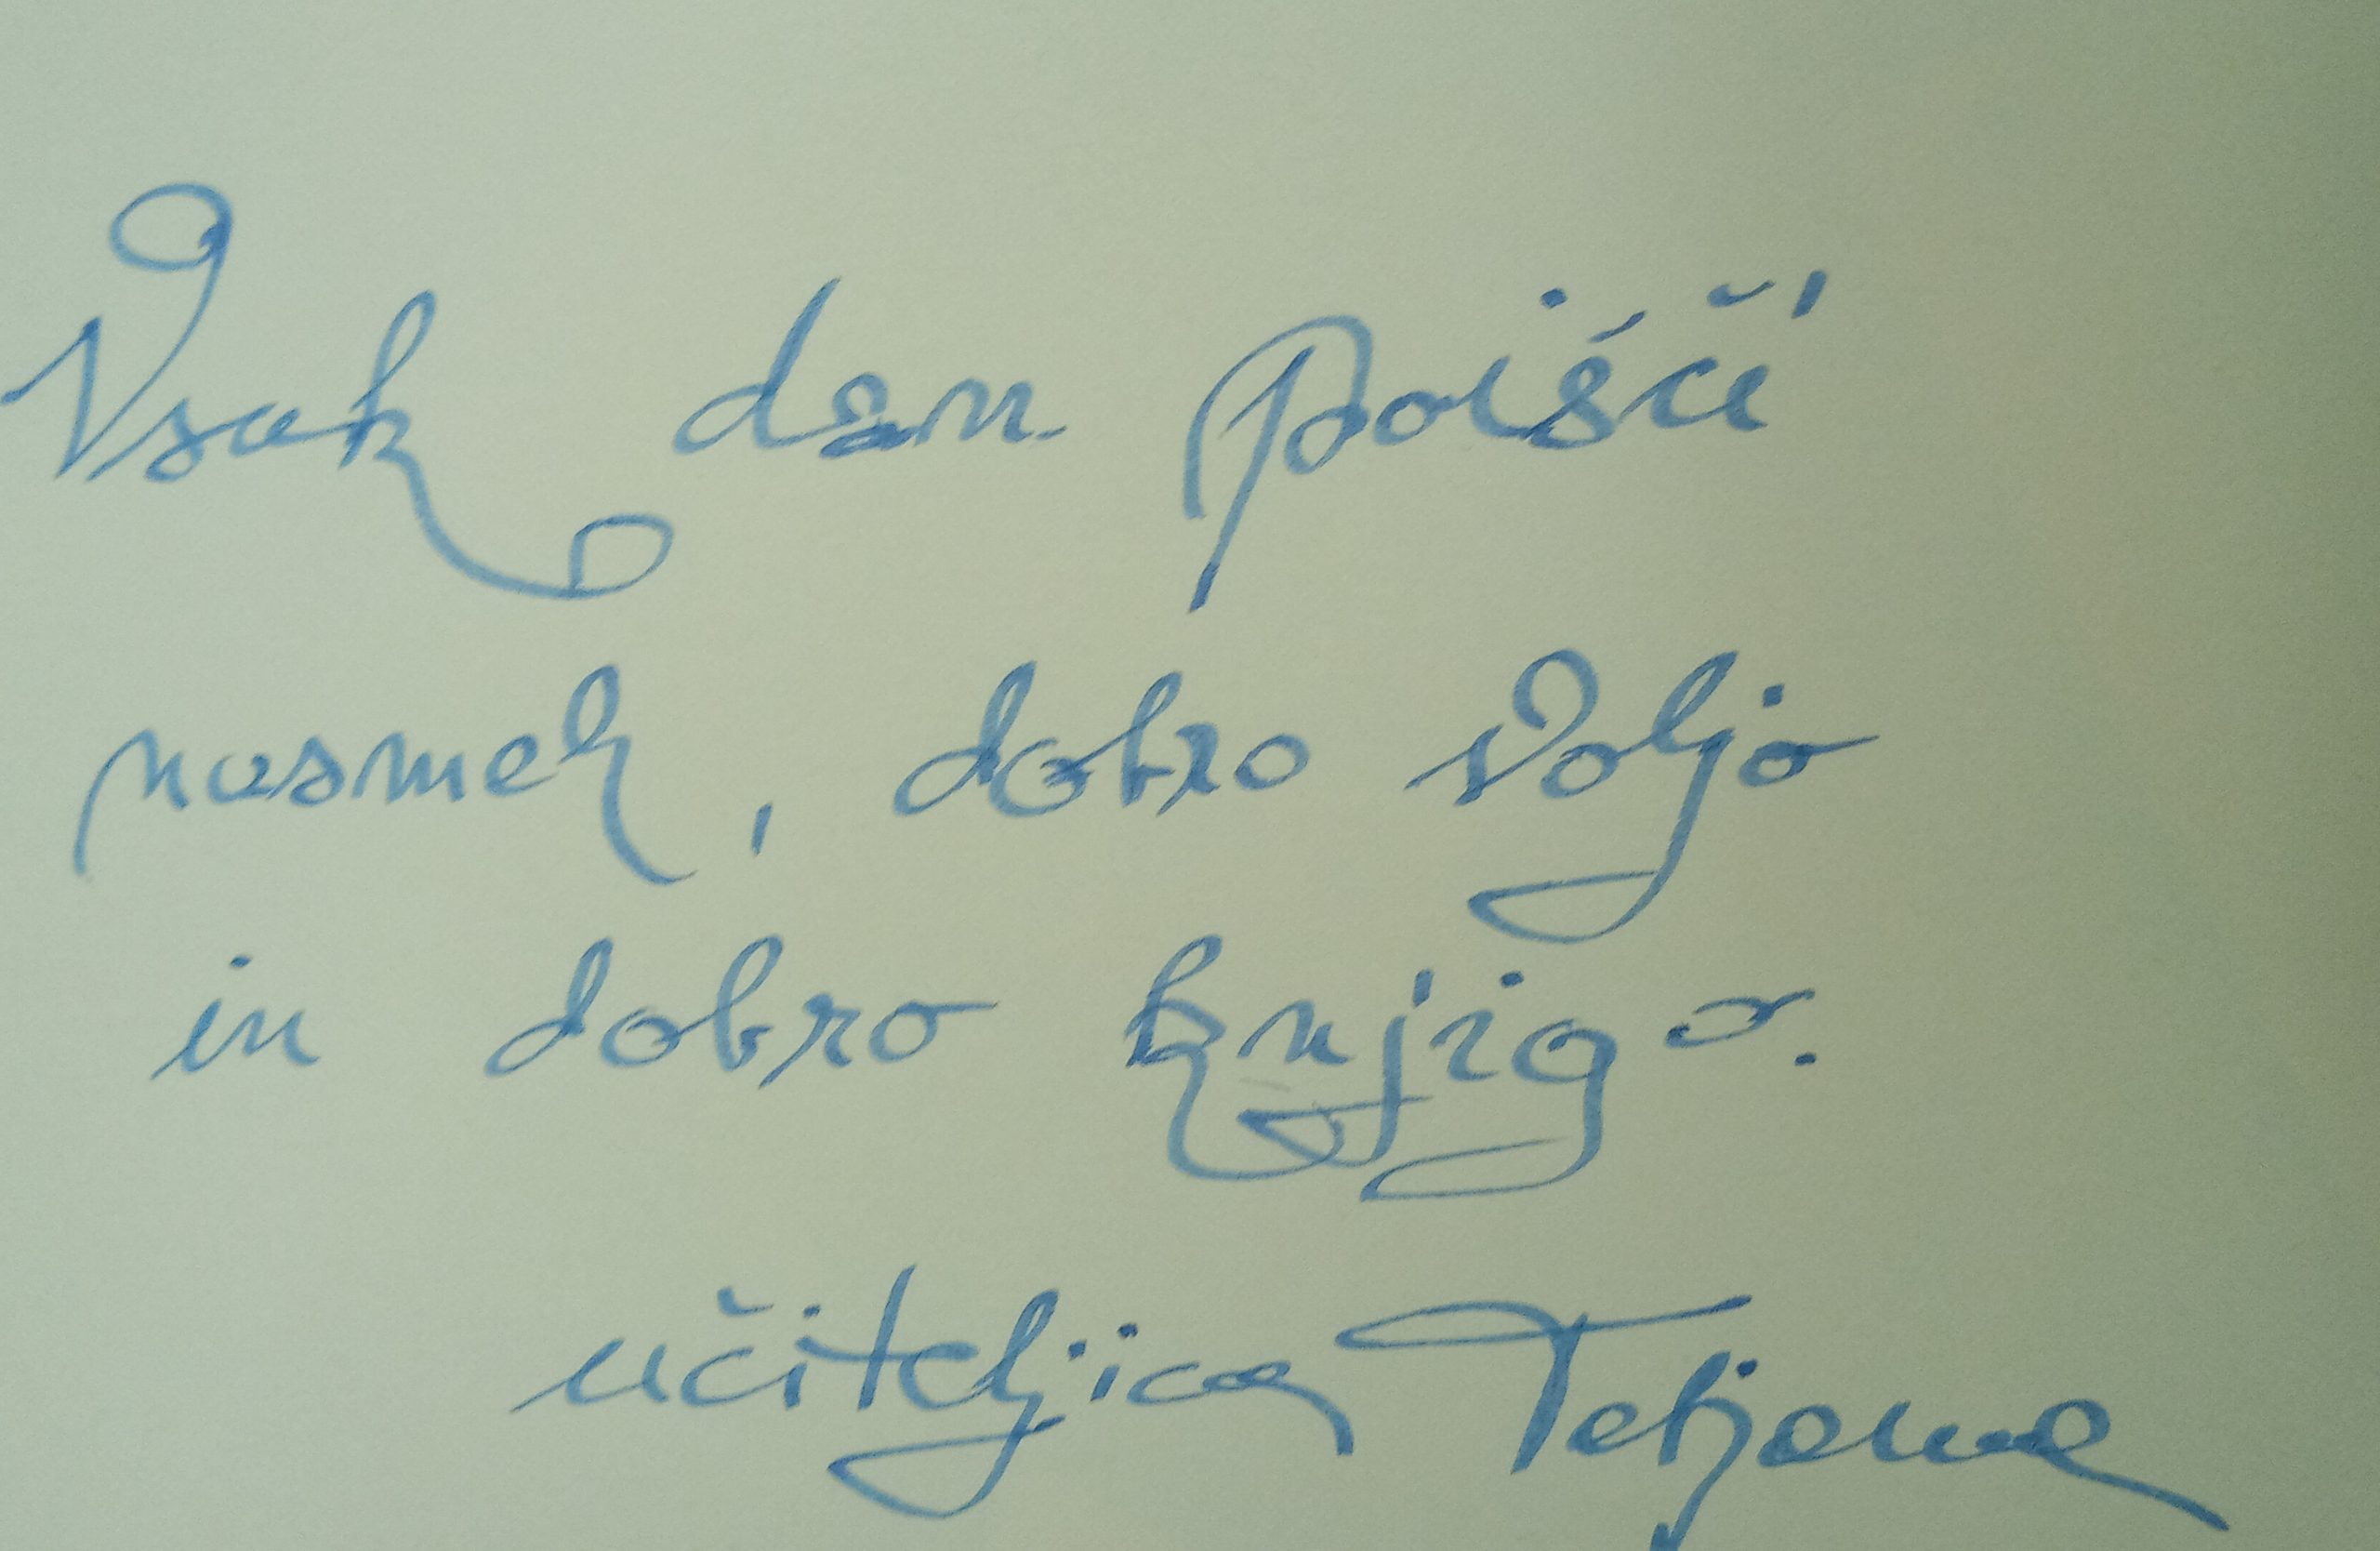 Vsak dan poišči
nasmeh, dobro voljo
in dobro knjigo.
učiteljica Tatjana